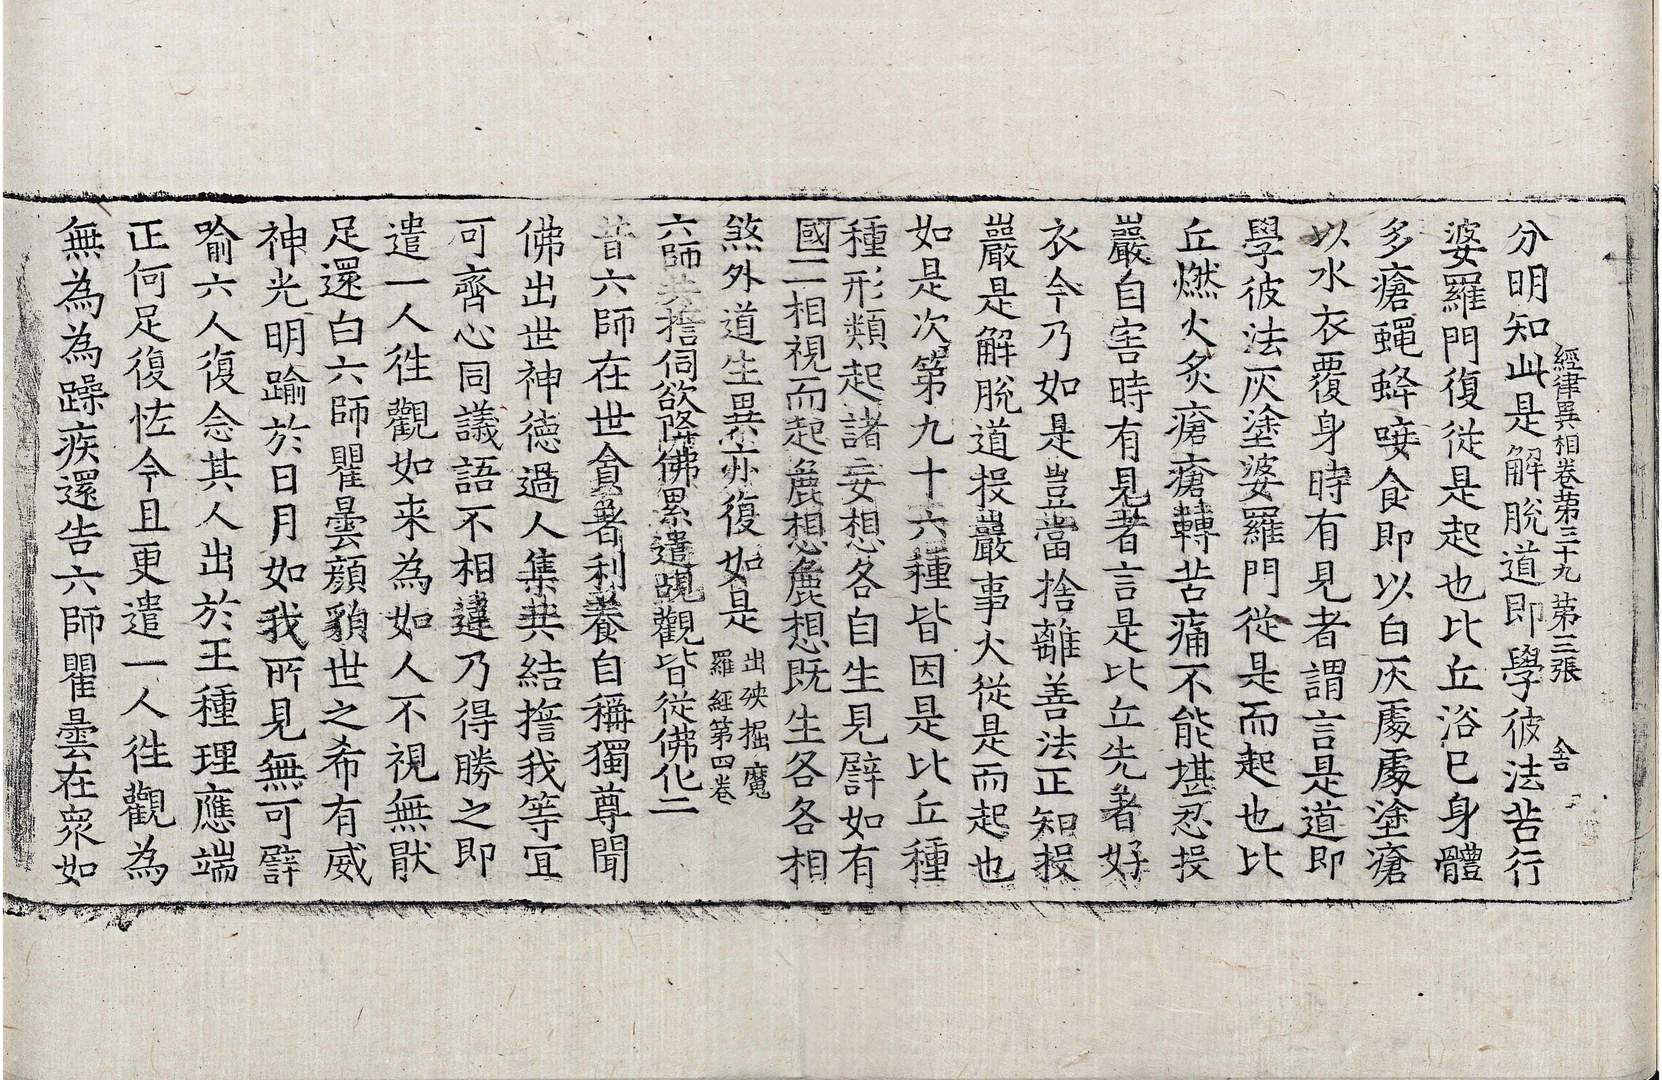 經律異相卷第三十九 第三張 舍
分明知此是解脫道即學彼法苦行
婆羅門復從是起也比丘浴已身體
多瘡蠅蜂唼食即以白灰處處塗瘡
以水衣覆身時有見者謂言是道即
學彼法灰塗婆羅門從是而起也比
丘燃火炙瘡瘡轉苦痛不能堪忍投
巖自害時有見者言是比丘先著好
衣今乃如是豈當捨離善法正知投
巖是解脫道投巖事火從是而起也
如是次第九十六種皆因是比丘種
種形類起諸妄想各自生見譬如有
國二相視而起麁想麁想既生各各相
煞外道生異亦復如是
出殃掘魔
羅經第四卷
六師共擔伺欲降佛累遣覘觀皆從佛化二
昔六師在世貪著利養自稱獨尊聞
佛出世神德過人集共結擔我等宜
可齊心同議語不相違乃得勝之即
遣一人往觀如来為如人不視無猒
足還白六師瞿曇顏貌世之希有威
神光明踰於日月如我所見無可譬
喻六人復念其人出於王種理應端
正何足復恠今且更遣一人往觀為
無為為躁疾還告六師瞿曇在衆如